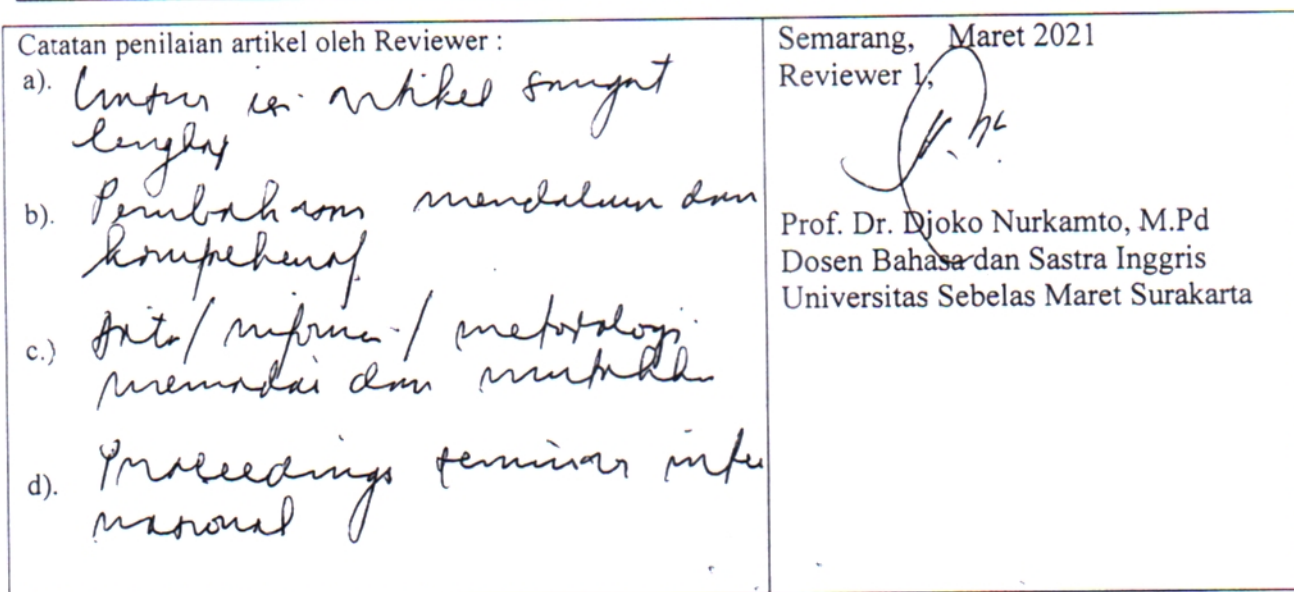 Catatan penilaian artikel oleh Reviewer :
a). Unsur isi artikel sangat
lengkap
b). Pembahasan mendalam dan
komprehensif
c.) Data/informasi/metodologi
memadai dan mutakhir
d). Proceedings seminar inter
nasional
Semarang, Maret 2021
Reviewer 1,
Prof. Dr. Djoko Nurkamto, M.Pd
Dosen Bahasa dan Sastra Inggris
Universitas Sebelas Maret Surakarta